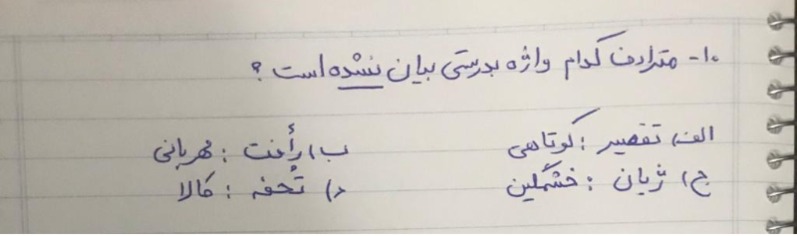 ۱۰- مترادف کدام واژه بدرستی بیان نشده است ؟
الف) تقصیر : کوتاهی ب) رأفت : مهربانی
ج) ژیان : خشمگین د) تُحفه : کالا